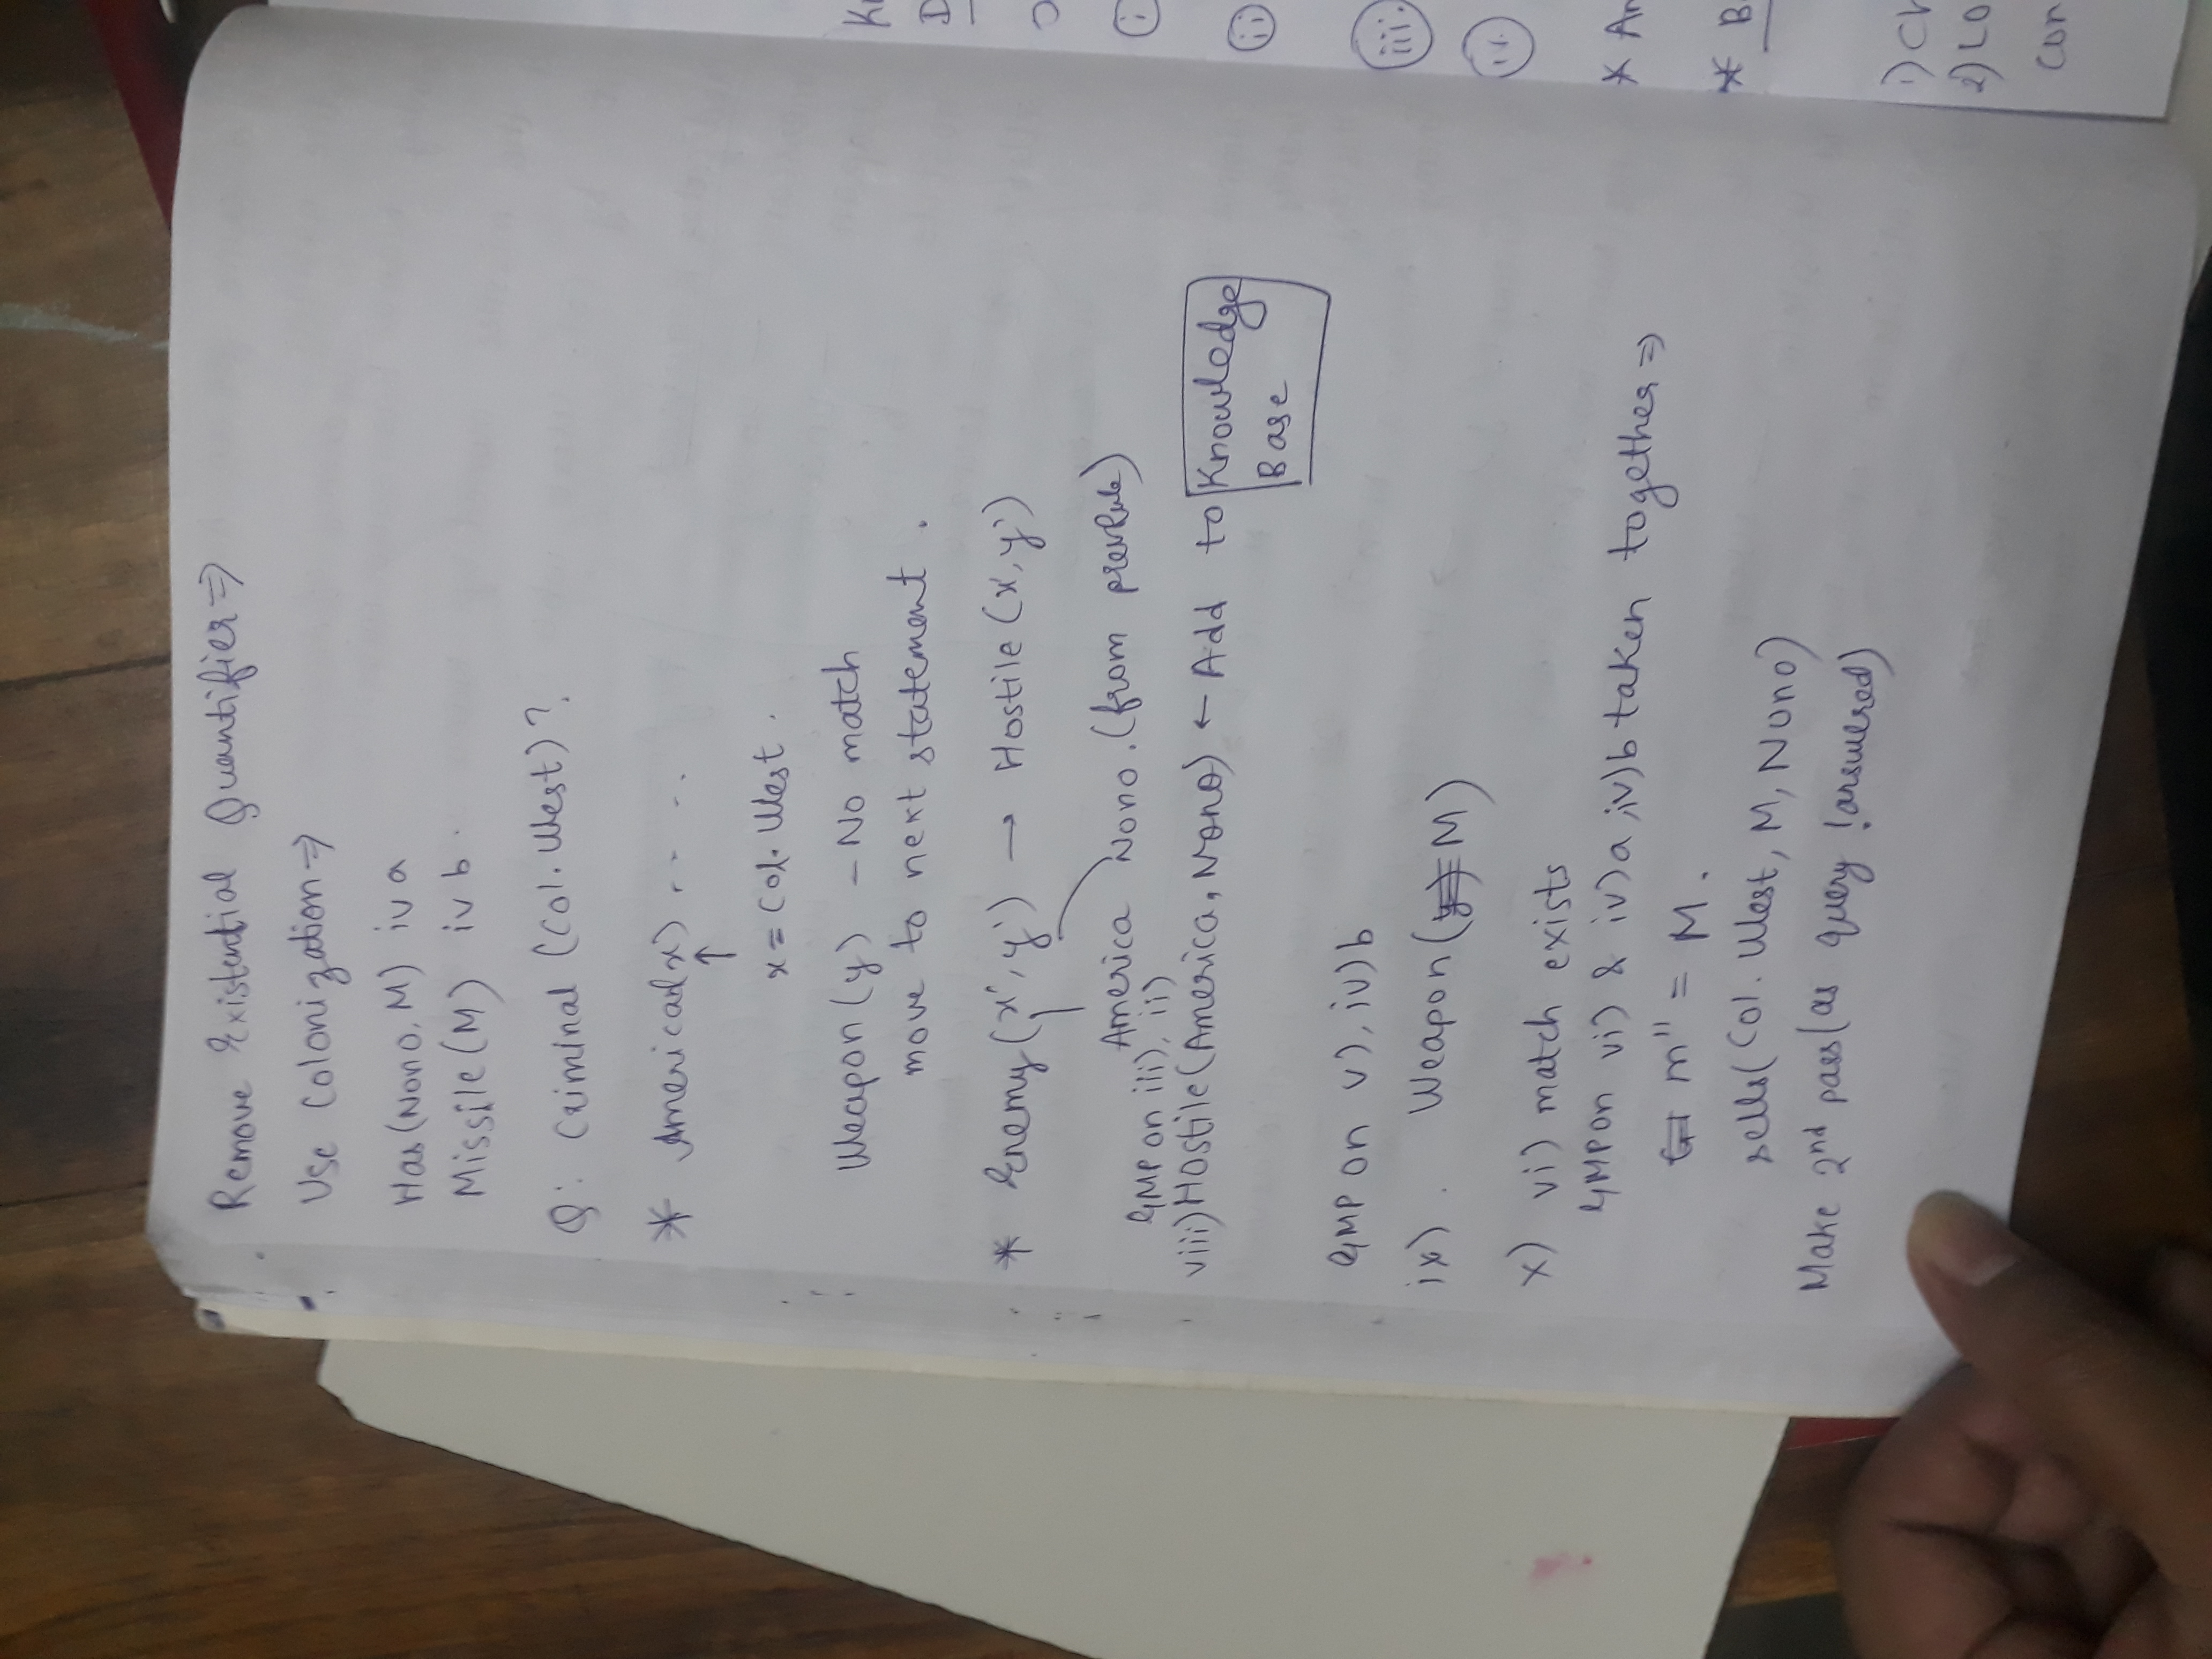 Remove Existential Quantifier ⇒
Use Colonization ⇒
Has(Nono, M) iv a
Missile(M) iv b.
Q: Criminal (Col. West)?
* American(x) . . . .
↑
x = Col. West.
Weapon (y) - No match
move to next statement.
* Enemy(x', y') → Hostile(x', y')
America Nono. (from
GMP on iii), ii)
viii) Hostile(America, Nono) ← Add to Knowledge
Base
GMP on v), iv)b
ix) . Weapon(M)
x) vi) match exists
GMP on vi) & iv)a, iv)b taken together ⇒
m'' = M.
sells(Col. West, M, Nono)
Make 2nd pass(as query !answered)
K
I
i
ii
iii.
iv.
* An
* B
1) Ch
2) Lo
Con